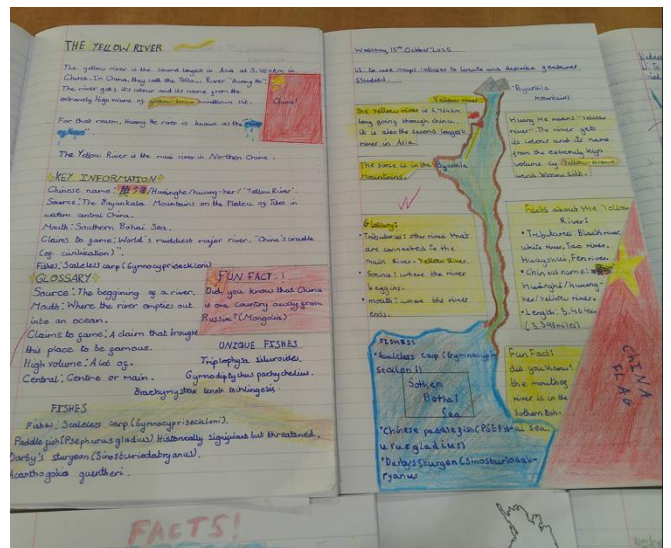 THE YELLOW RIVER
The yellow river is the second longest in Asia at 5,464km in
China. In China, they call the Yellow River "huang he".
The river gets its colour and its name from the
extremely high volume of yellow-brown silt.
China!
For that reason, Huang He river is known as the "river
of
The Yellow River is the main river in Northern China.
KEY INFORMATION
Chinese name: /Huánghé/hwang-her/"Yellow River".
Source: The Bayankala Mountains on the Plateau of Tibet in
western central China.
Mouth: Southern Bohai Sea.
Claims to fame: World's muddiest major river. "China's cradle
(of civilisation)".
Fishes: Scaleless carp (Gymnocypriseckloni)
GLOSSARY
Source: The beggining of a river.
Mouth: Where the river empties out
into an ocean.
Claims to fame: A claim that brought
this place to be famous.
High volume: A lot of.
Central: Centre or main.
FUN FACT!
Did you know that China
is one country away from
Russia? (Mongolia)
UNIQUE FISHES
Triplophysa siluroides.
Gymnodiptychus pachycheilus.
FISHES
Fishes: Scaleless carp (Gymnocypriseckloni).
Paddle fish (Psephurus gladius) Historically significant but threatened.
Darby's sturgeon (Sinosturiodabryanus).
Acanthogobio guentheri.
FACTS!
Wednesday 15th October 2025
LI: To use maps/atlases to locate and describe features
studied.
Yellow river:
The Yellow river is 5,464km
long going through china,
it is also the second largest
river in Asia.
The source is in the Byanhila
Mountains.
Byanhila
Mountains
Huang He means "Yellow
river". The river gets
its colour and its name
from the extremely High
volume of Yellow-brown
silt.
Glossary:
• Tributaries: other rivers that
are connected to the
main River-Yellow River.
• Source: where the river
begins.
• mouth: where the river
ends.
Facts about the Yellow
River:
• Tributaries: Black river,
white River, Tao river,
Huangshui, Fen river.
• Chinese name:
Huánghé/hwang-
her/Yellow river.
• Length: 5,464km
(3,395miles)
FISHES:
• Scaleless carp (Gymnocypri
seckloni)
Sothern
Bothai
Sea
• Chinese paddlefish (PSEPH
urus gladius)
• Darby's Sturgeon (Sinosturioda
ryanus
Fun Fact:
did you know:
the mouth of
river is in the
Southern Bohai
sea.
CHINA
FLAG